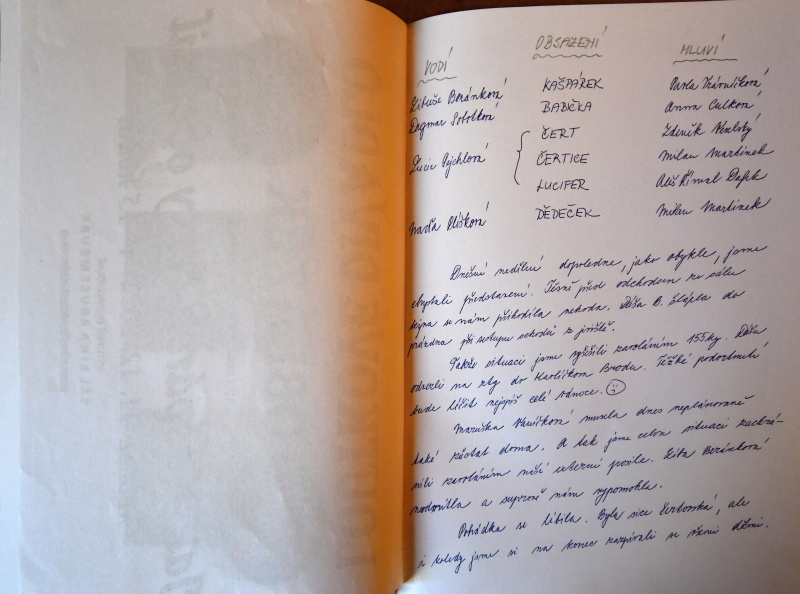 VODÍ OBSAZENÍ MLUVÍ
Libuše Beránková KAŠPÁREK Pavla Vrávníková
Dagmar Sobotková BABIČKA Anna Culková
ČERT Zdeněk
Lucie Pejchlová ČERTICE Milan Martinek
LUCIFER Aleš Římal Dafek
Naďa Plíšková DĚDEČEK Milan Martinek
Dnešní nedělní dopoledne, jako obykle, jsme
chystali představení. Těsně před odchodem ze sálu
se nám přihodila nehoda. Dáša B. šlápla do
prázdna při sestupu schodů z jeviště.
Takže situaci jsme vyřešili zavoláním 155ky. Dášu
odvezli na rtg do Havlíčkova Brodu. Těžké podvrtnutí
bude léčit nejspíš celé vánoce.
Maruška musela dnes neplánovaně
také zůstat doma. A tak jsme celou situaci zachrá-
nili zavoláním naší externí posile. Liba Beránková
nadorazila a superově nám vypomohla.
Pohádka se líbila. Byla sice čertovská, ale
i koledy jsme si na konec zazpívali se všemi dětmi.